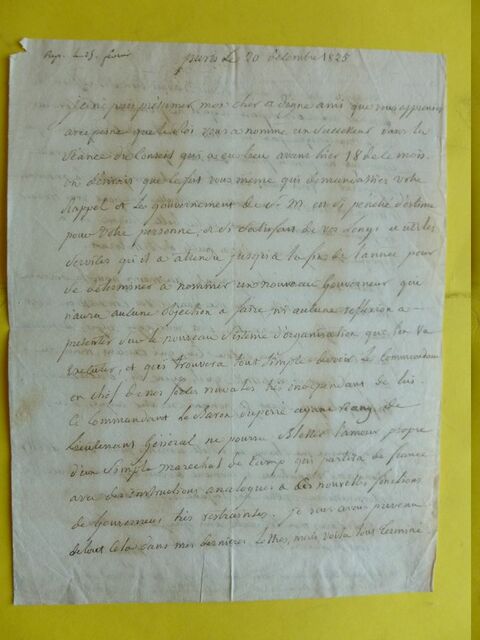 Rep. le 25 février
paris le 20 décembre 1825
je ne puis présumer mon cher et digne ami que vous apprenez
avec peine que le Roi vous a nommé un successeur dans la
séance du Conseil qui a eu lieu avant hier 18 de ce mois.
on désiroit que ce fut vous meme qui demandassiez votre
Rappel et le gouvernement de S. M. est si pénétré d'estime
pour votre personne, et si satisfait de vos longs et utiles
services qu'il a attendu jusqu'à la fin de l'année pour
se déterminer à nommer un nouveau Gouverneur qui
n'aura aucune objection a faire ni aucune réflexion a
présenter sur le nouveau système d'organisation que l'on va
exécuter, et qui trouvera tout simple de voir le Commandant
en chef de nos forces navales très indépendant de lui.
Ce Commandant le Baron duperré ayant rang de
Lieutenant Général ne pourra blesser l'amour propre
d'un simple maréchal de Camp qui partira de france
avec des instructions analogues a des nouvelles fonctions
de Gouverneur très restraintes. je vous avois prévenu
de tout cela dans mes dernieres lettres, mais voila tout terminé